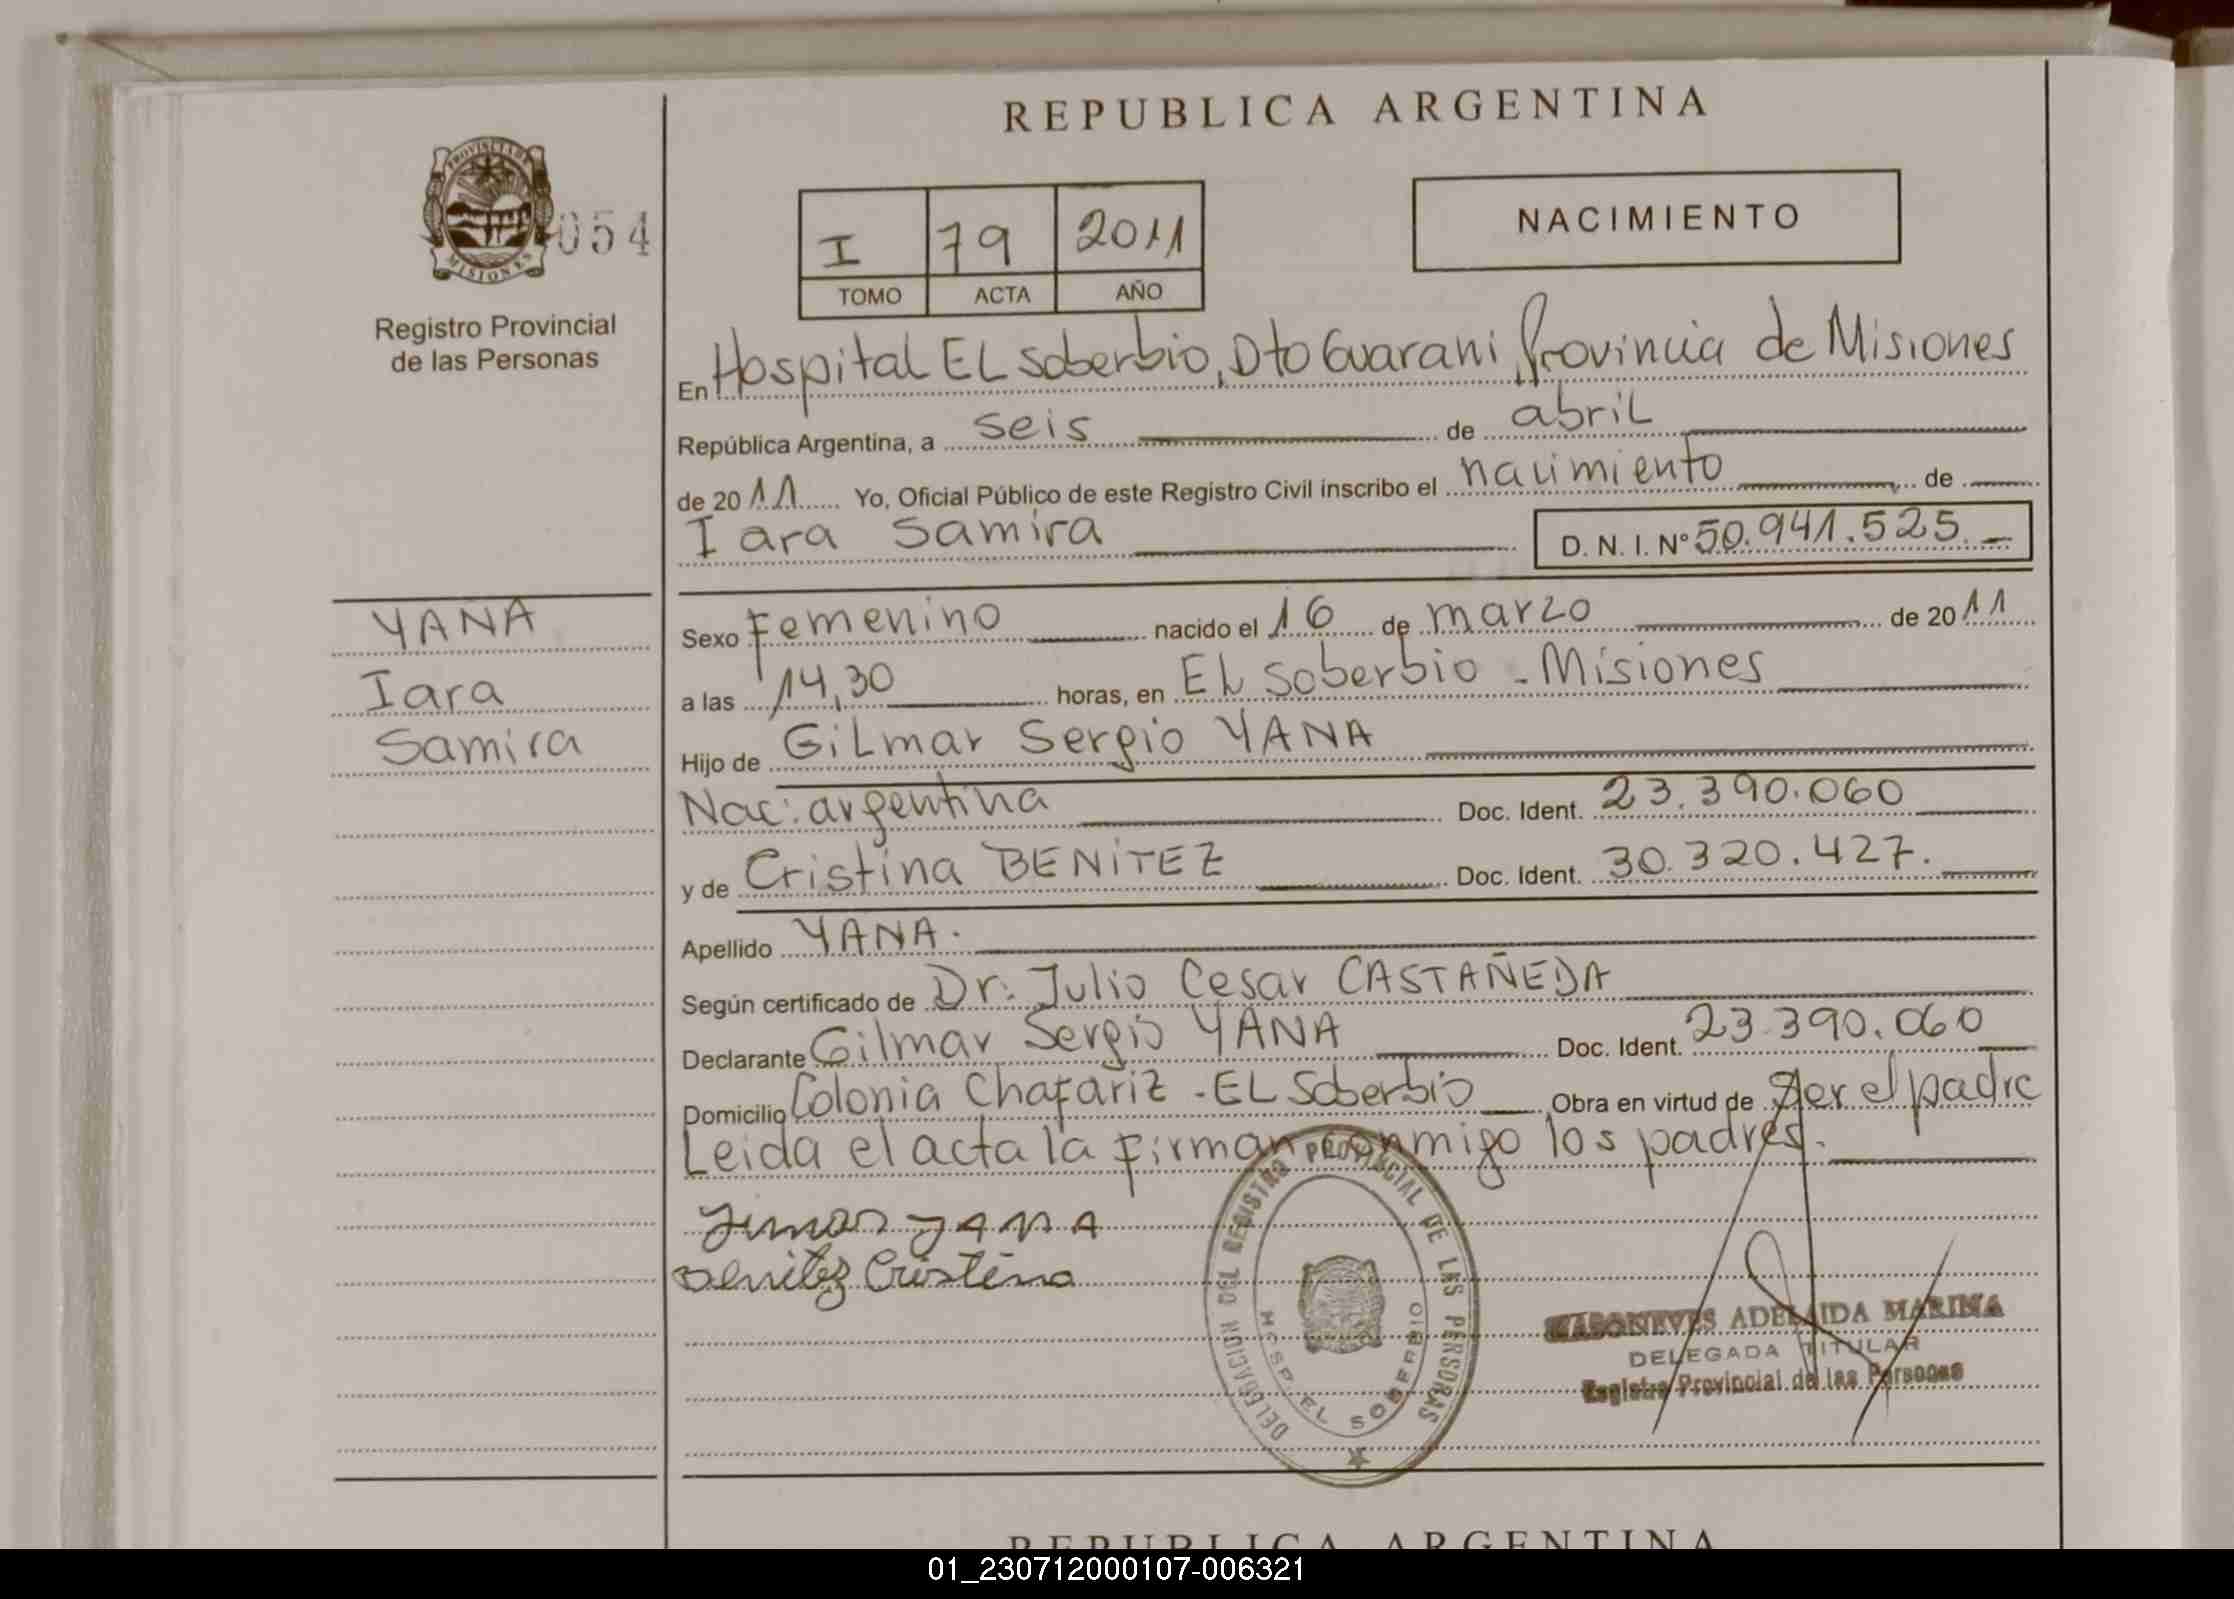 REPUBLICA ARGENTINA
PROVINCIA DE
MISIONES
054
Registro Provincial
de las Personas
I 79 2011
TOMO ACTA AÑO
NACIMIENTO
En Hospital EL Soberbio, Dto Guarani, Provincia de Misiones
República Argentina, a seis de abril
de 2011 Yo, Oficial Público de este Registro Civil inscribo el nacimiento de
Iara Samira D. N. I. Nº 50.941.525.-
YANA
Iara
Samira
Sexo Femenino nacido el 16 de marzo de 2011
a las 14,30 horas, en EL Soberbio - Misiones
Hijo de GiLmar Sergio YANA
Nac: argentina Doc. Ident. 23.390.060
y de Cristina BENITEZ Doc. Ident. 30.320.427.
Apellido YANA.
Según certificado de Dr: Julio Cesar CASTAÑEDA
Declarante Gilmar Sergio YANA Doc. Ident. 23.390.060
Domicilio Colonia Chafariz - EL Soberbio Obra en virtud de ser el padre
Leida el acta la firman conmigo los padres.
YANA
Benitez Cristina
DELEGACION DEL REGISTRO PROVINCIAL DE LAS PERSONAS
HOSP. EL SOBERBIO
ADELAIDA MARINA
DELEGADA TITULAR
Registro Provincial de las Personas
REPUBLICA ARGENTINA
01_230712000107-006321